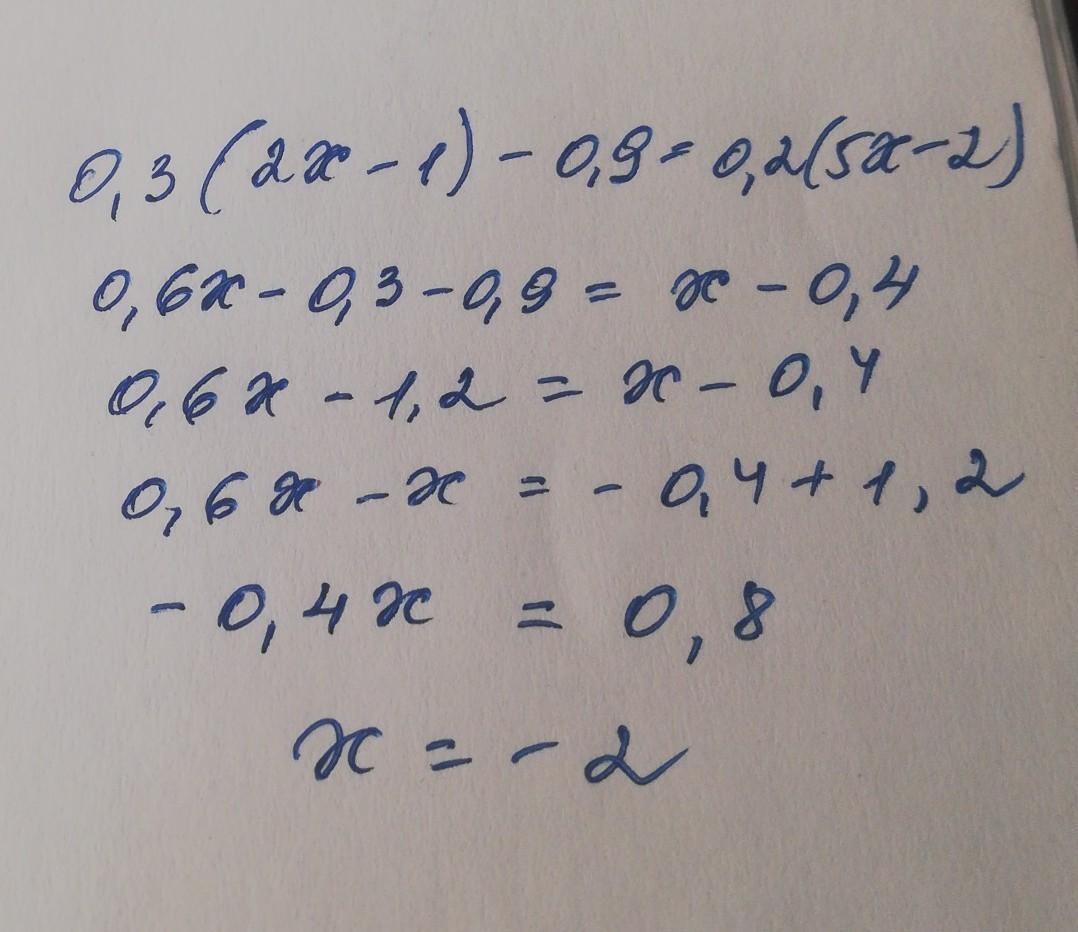 0,3(2x-1)-0,9=0,2(5x-2)
0,6x-0,3-0,9=x-0,4
0,6x-1,2=x-0,4
0,6x-x=-0,4+1,2
-0,4x=0,8
x=-2